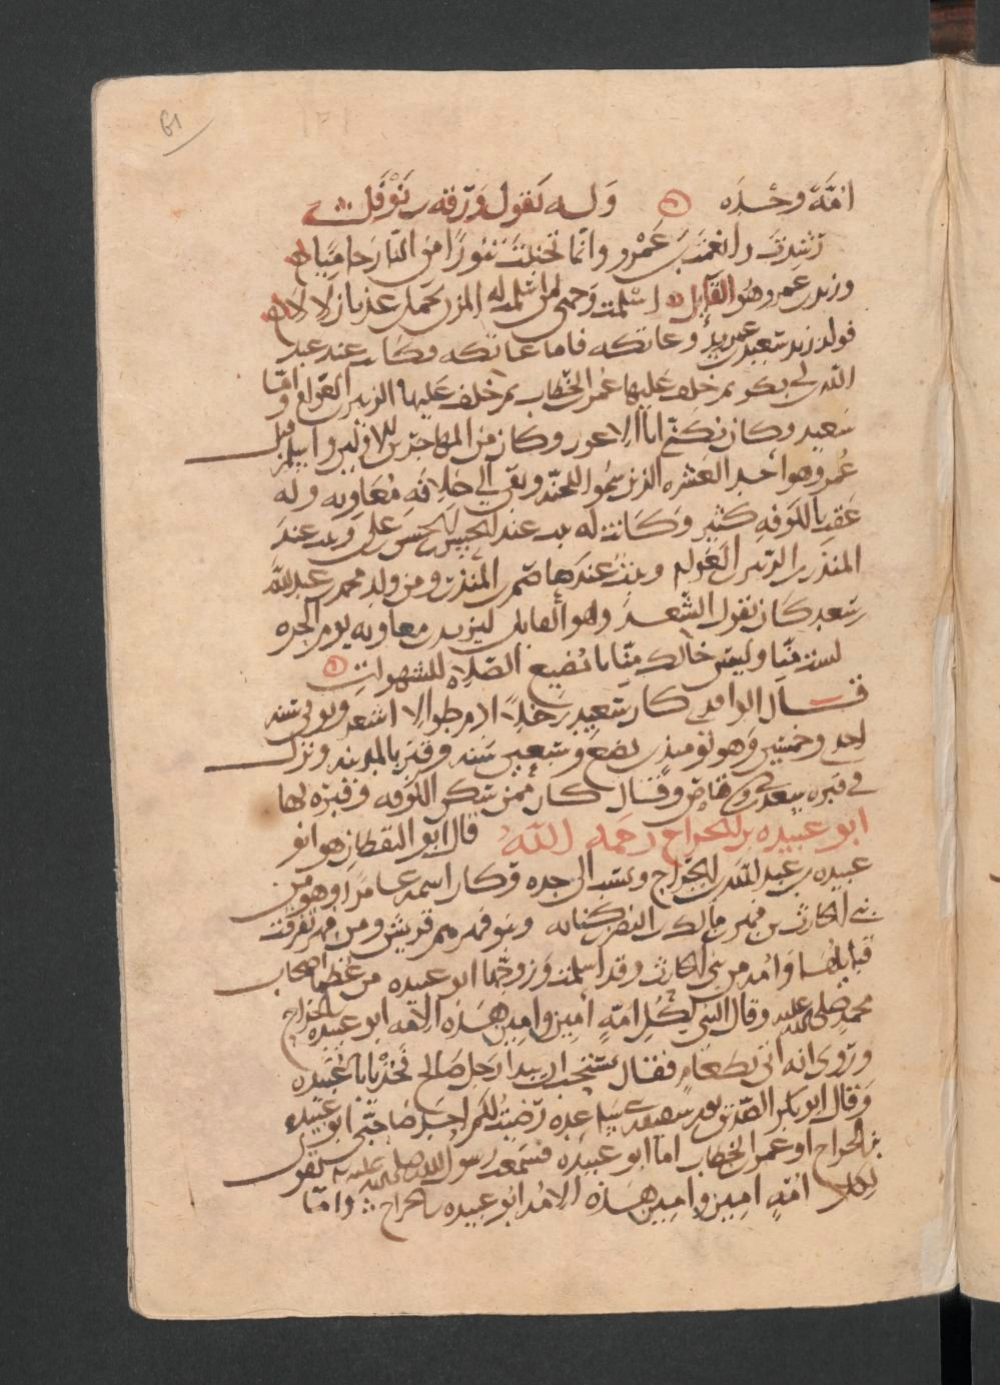 61
امّة وحده وله يقول ورقه بن نوفل
رشدت وانعمت بن عمرو وانما تجنبت تنورا من النار حاميا
وزيد بن عمرو هو القايل اسلمت وجهي لمن اسلمت له المزن تحمل عذبا زلالا
فولد زيد سعيد بن زيد وعاتكه فاما عاتكه فكانت عند عبد
الله بن ابي بكر ثم خلف عليها عمر بن الخطاب ثم خلف عليها الزبير بن العوام وامّا
سعيد فكان يكنّي ابا الاعور وكان من المهاجرين الاولين واسلم قبل
عمر وهو احد العشره الذين سمّوا للجنّه وبقي الي خلافه معاويه وله
عقب بالكوفه كثير وكانت له بنت عند الحسن بن الحسن بن علي وبنت عند
المنذر بن الزبير بن العوام وبنت عندها عاصم بن المنذر ومن ولده محمد بن عبد الله
بن سعيد كان يقول الشعر وهو القايل ليزيد بن معاويه يوم الحره
لست منّا وليس خالك منّا يا مضيع الصلاه للشهوات
قال الواقدي كان سعيد رجلا ادم طوالا اشعر وتوفي سنه
احد وخمسين وهو يوميذ بضع وسبعين سنه وقبر بالمدينه ونزل
في قبره سعد بن ابي وقاص وقال كان ممن سكن الكوفه وقبره بها
ابو عبيده بن الجراح رحمه الله قال ابو اليقظان هو ابو
عبيده بن عبد الله بن الجرّاح ونسب الى جده وكان اسمه عامرا وهو من
بني الحارث بن فهر بن مالك بن النضر بن كنانه وبنو فهر هم قريش ومن فهر تفرقت
قبايلها وامه من بني الحارث وقد اسلمت وزوجها ابو عبيده من عظما اصحاب
محمد صلى الله عليه وقال النبي لكل امّه امين وامين هذه الامه ابو عبيده بن الجراح
وروى انه اتى بطعام فقال يستحب ان يبدا رجل صالح فخذ يا ابا عبيده
وقال ابو بكر الصديق يوم سقيفه بني ساعده رضيت لكم احد صاحبي ابو عبيده
بن الجراح او عمر بن الخطاب اما ابو عبيده فسمعت رسول الله صلى الله عليه يقول
لكل امّه امين وامين هذه الامه ابو عبيده بن الجراح وامّا